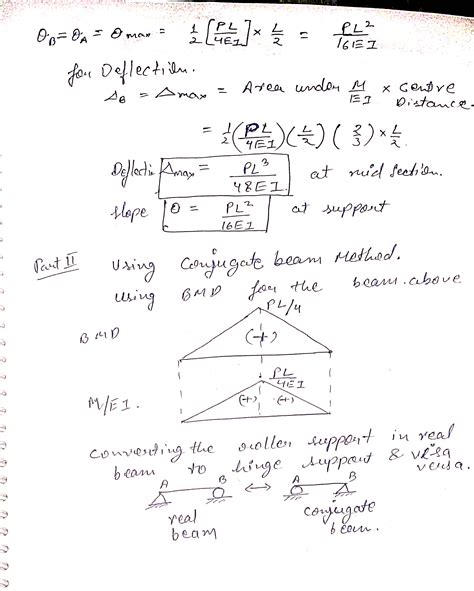 θB = θA = θmax = 1/2 [PL/4EI] × L/2 = PL²/16EI
for Deflection.
ΔB = Δmax = Area under M/EI × Centre Distance.
= 1/2 (PL/4EI) (L/2) (2/3) × L/2
Deflectio Δmax = PL³/48EI at mid section.
slope θ = PL²/16EI at support
Part II Using Conjugate beam Method.
using BMD for the beam above
PL/4
BMD (+)
PL/4EI
M/EI. (+) (+)
converting the roller support in real
beam to hinge support & visa versa.
A B ↔ A B
real beam
conjugate beam.